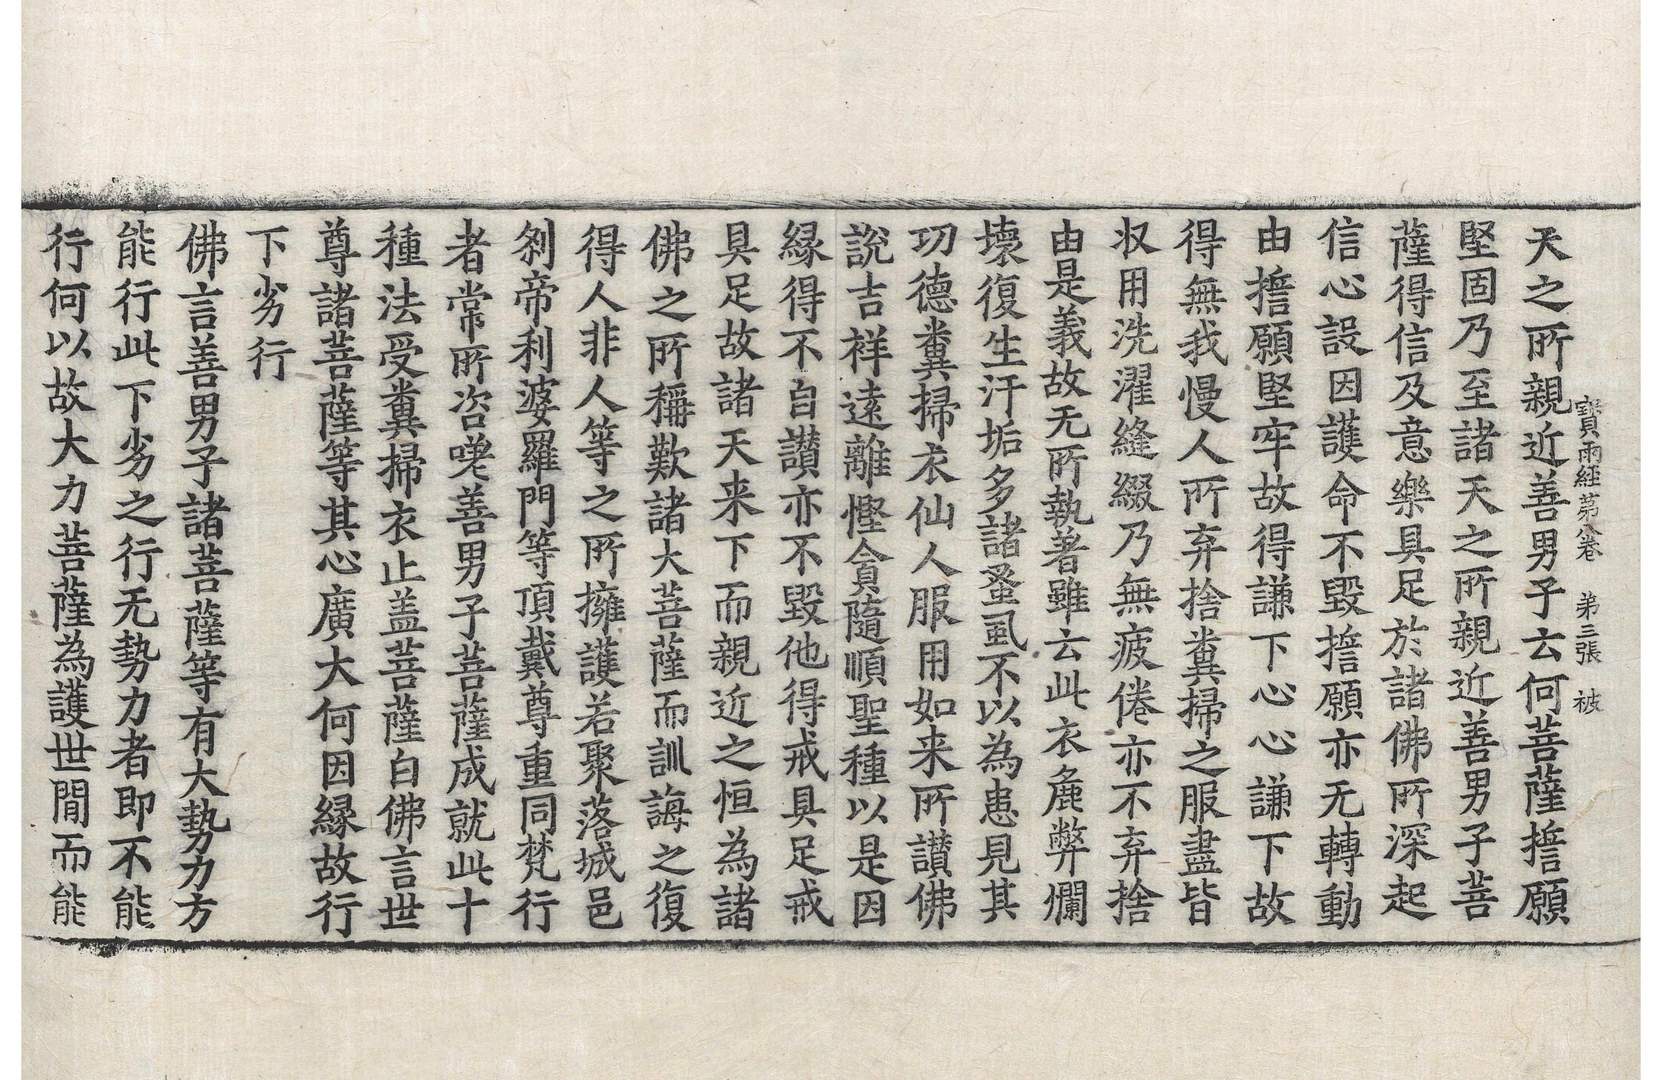 寶雨經第八卷 第三張 被
天之所親近善男子云何菩薩擔願
堅固乃至諸天之所親近善男子菩
薩得信及意樂具足於諸佛所深起
信心設因護命不毀擔願亦无轉動
由擔願堅牢故得謙下心心謙下故
得無我慢人所弃捨糞掃之服盡皆
収用洗濯縫綴乃無疲倦亦不弃捨
由是義故无所執著雖云此衣麁弊爛
壞復生汗垢多諸蚤虱不以為患見其
功德糞掃衣仙人服用如来所讃佛
說吉祥遠離慳貪隨順聖種以是因
縁得不自讃亦不毀他得戒具足戒
具足故諸天来下而親近之恒為諸
佛之所稱歎諸大菩薩而訓誨之復
得人非人等之所擁護若聚落城邑
剎帝利婆羅門等頂戴尊重同梵行
者常所咨嗟善男子菩薩成就此十
種法受糞掃衣止盖菩薩白佛言世
尊諸菩薩等其心廣大何因縁故行
下劣行
佛言善男子諸菩薩等有大勢力方
能行此下劣之行无勢力者即不能
行何以故大力菩薩為護世間而能